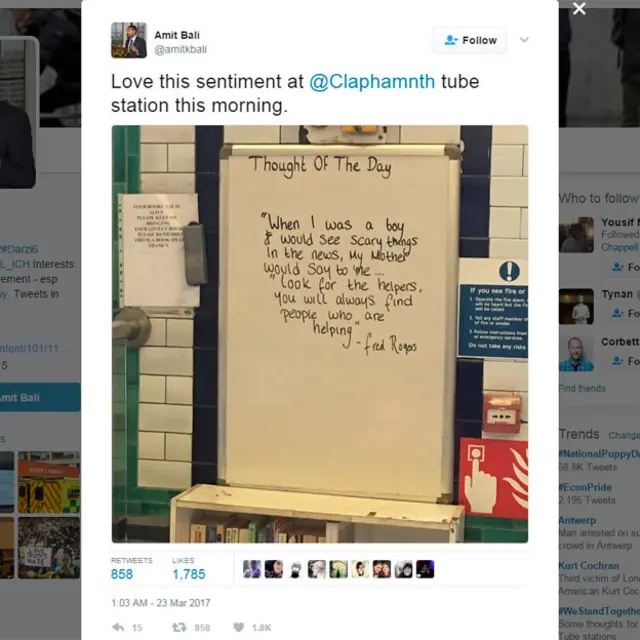 Amit Bali
@amitkbali
Follow
Love this sentiment at @Claphamnth tube
station this morning.
Thought Of The Day
"When I was a boy
& would See scary things
In the news, my Mother
Would Say to me ...
"Look for the helpers.
You will always find
people who are
helping"
- fred Rogers
If you see fire or
Do not take any risks
RETWEETS
858
LIKES
1,785
1:03 AM - 23 Mar 2017
15
858
1.8K
/#Darzi6
L_ICH Interests:
vement - esp
sy. Tweets in
ntent/101/11...
5
mit Bali
s
Who to follow
Yousif
Followed
Chappell
Fo
Tynan
Fo
Corbett
Fo
Find friends
Trends
Change
#NationalPuppyDa
58.8K Tweets
#EconPride
2,195 Tweets
Antwerp
Man arrested on su
crowd in Antwerp
Kurt Cochran
Third victim of Lon
American Kurt Coc
#WeStandTogethe
Some thoughts for
Tube stations